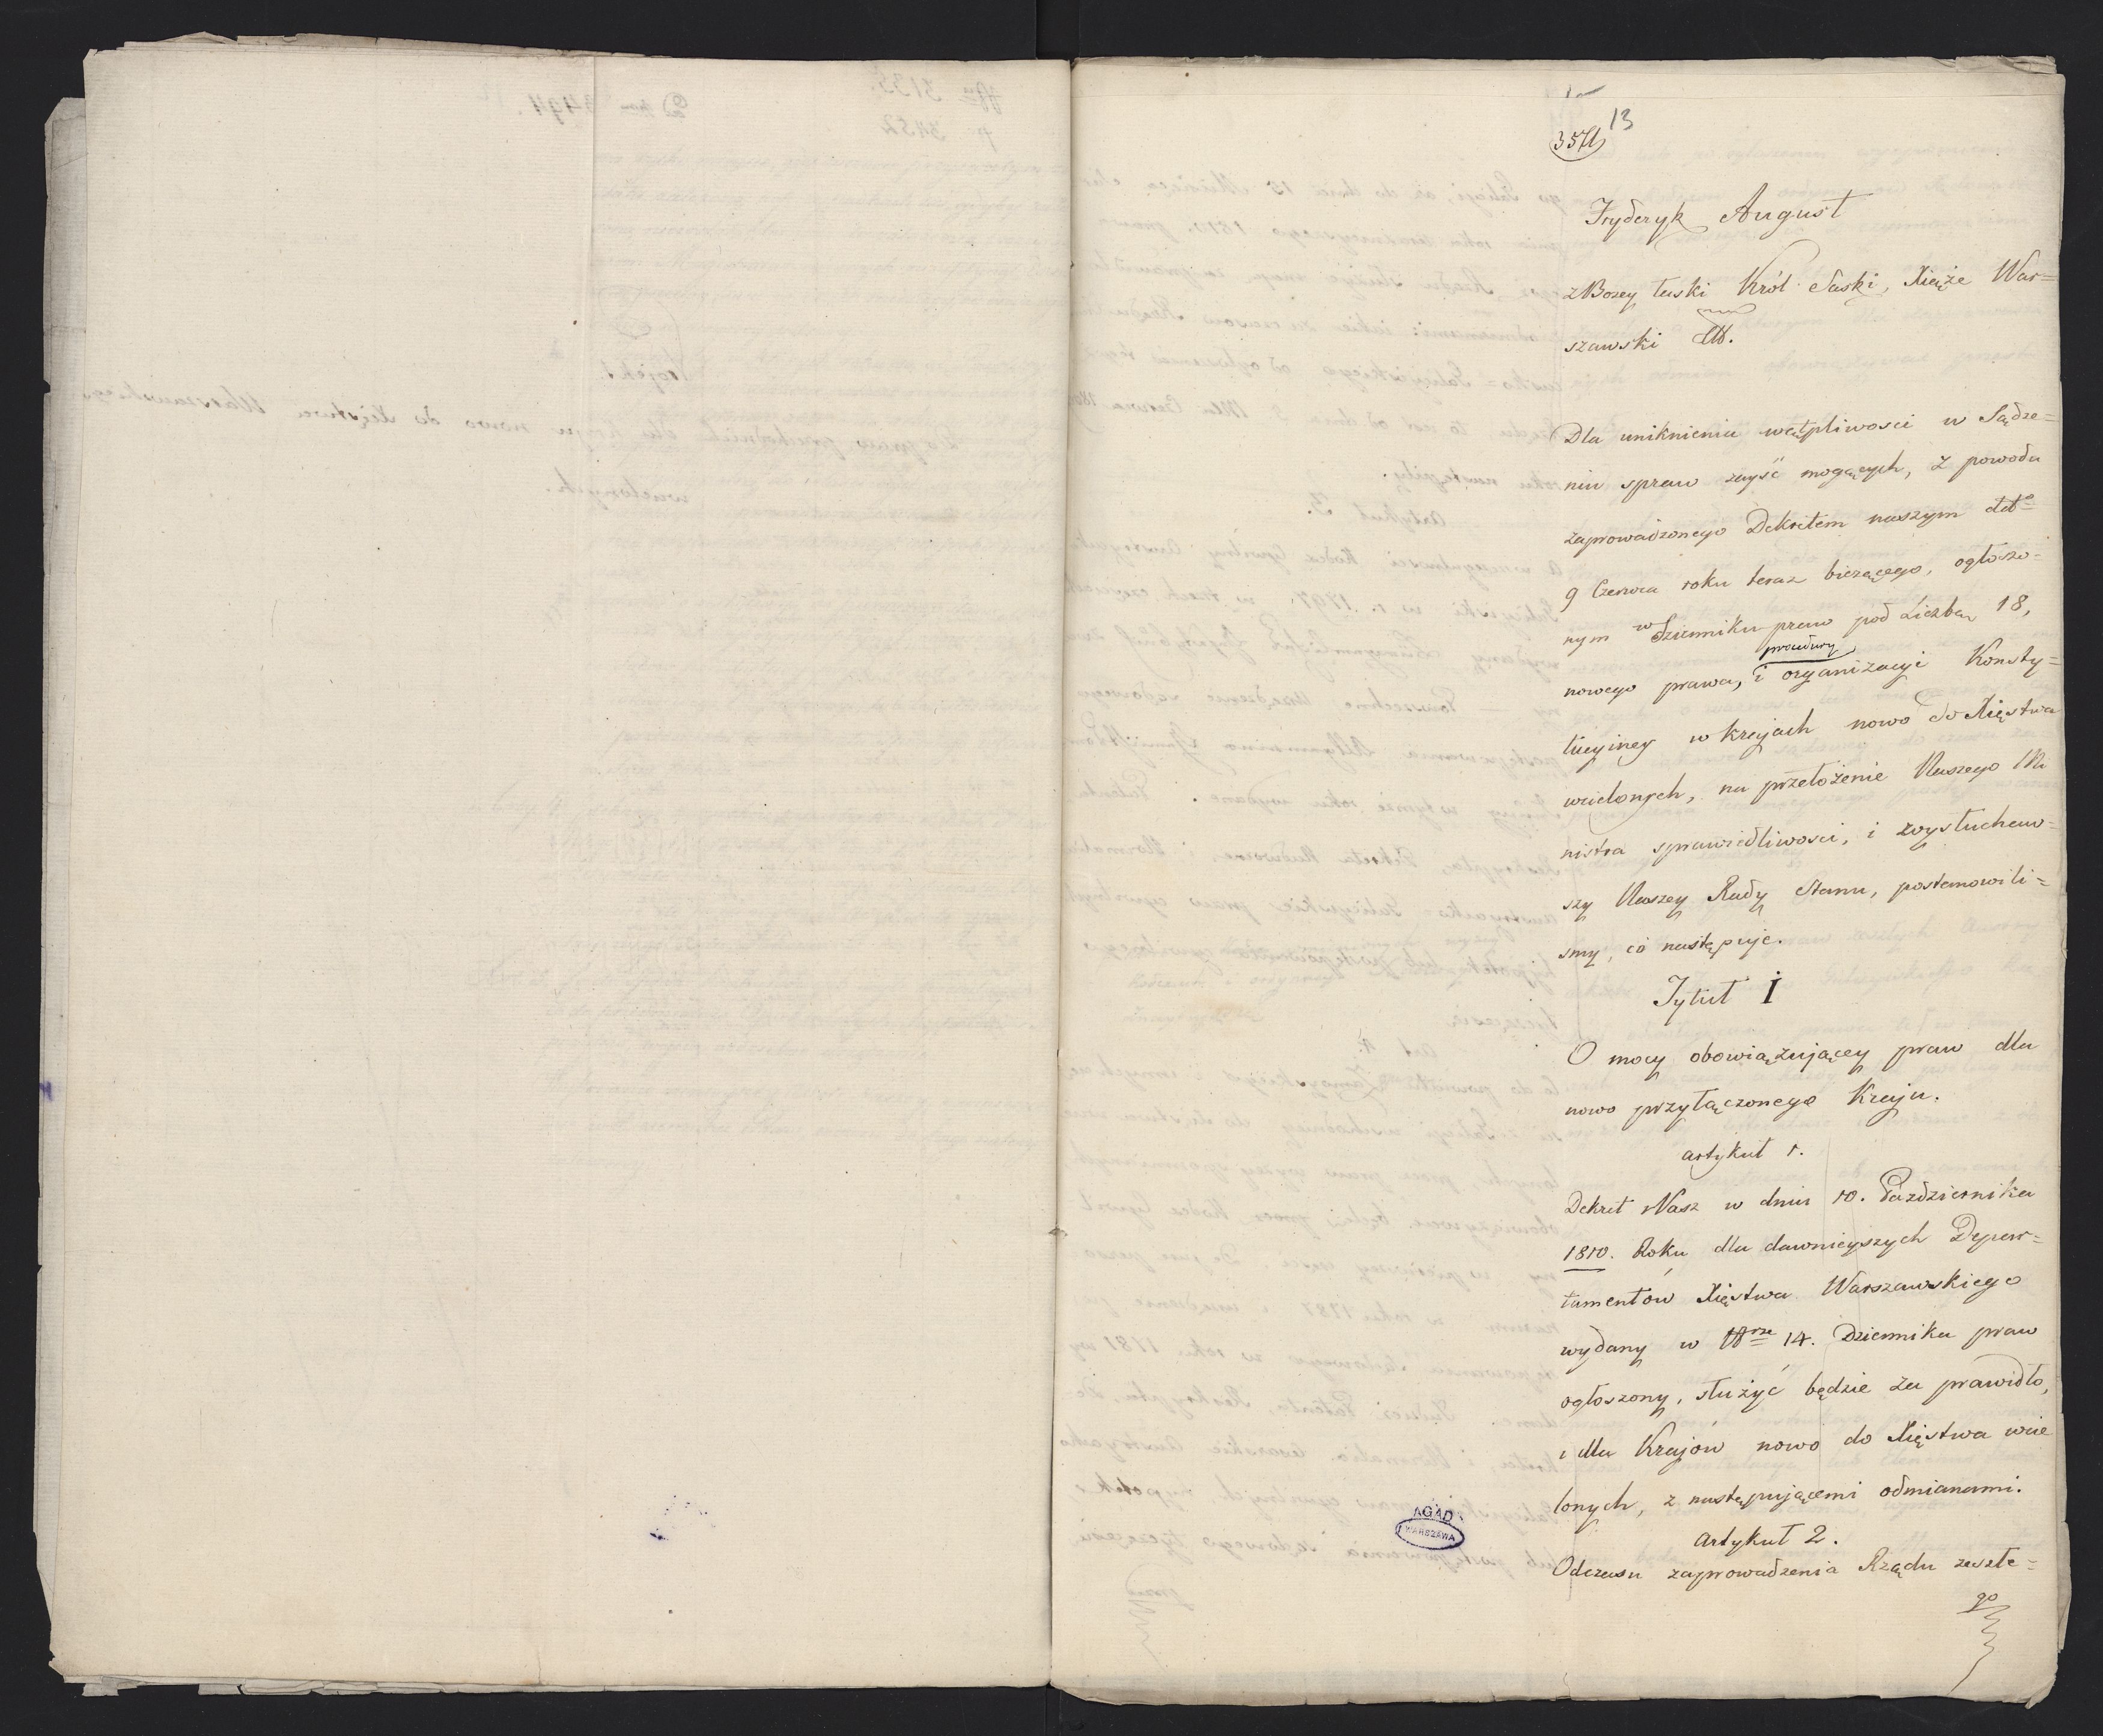 13
3571
Fryderyk August
z Bozey Łaski Król Saski, Xiąże War=
szawski &c.
Dla uniknienia wątpliwosci w Sądze=
niu spraw zayść mogących, z powodu
zaprowadzonego Dekretem naszym dtto
9 Czerwca roku teraz bieżącego, ogłoszo=
nym w Dzienniku praw pod Liczbą 18,
nowego prawa, procedury i organizacyi Konsty=
tucyiney w krajach nowo do Xięstwa
wcielonych, na przełożenie Naszego Mi
nistra sprawiedliwosci, i wysłuchaw=
szy Naszey Rady Stanu, postanowili=
smy, co następuje.
Tytuł I
O mocy obowiązującey praw dla
nowo przyłączonego Kraju.
artykuł 1.
Dekret Nasz w dniu 10. Października
1810. Roku dla dawnieyszych Depar=
tamentów Xięstwa Warszawskiego
wydany w Nrze 14. Dziennika praw
ogłoszony, służyć będzie za prawidło,
i dla Krajów nowo do Xięstwa wcie
lonych, z następującemi odmianami.
artykuł 2.
Odczasu zaprowadzenia Rządu zeszłe=
go
AGAD
WARSZAWA